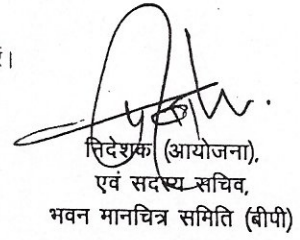 ।
निदेशक (आयोजना),
एवं सदस्य सचिव,
भवन मानचित्र समिति (बीपी)